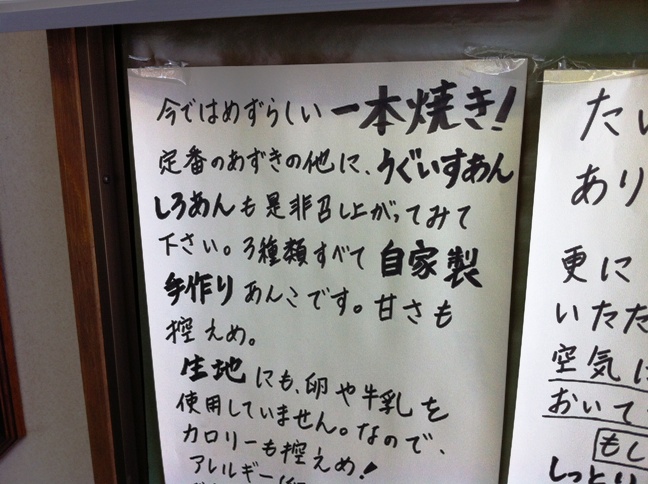 今ではめずらしい一本焼き!
定番のあずきの他に、うぐいすあん
しろあんも是非召し上がってみて
下さい。3種類すべて自家製
手作りあんこです。甘さも
控えめ。
生地にも、卵や牛乳を
使用していません。なので、
カロリーも控えめ!
アレルギー
たい
あり
更に
いただ
空気に
おいて
もし
しっとり